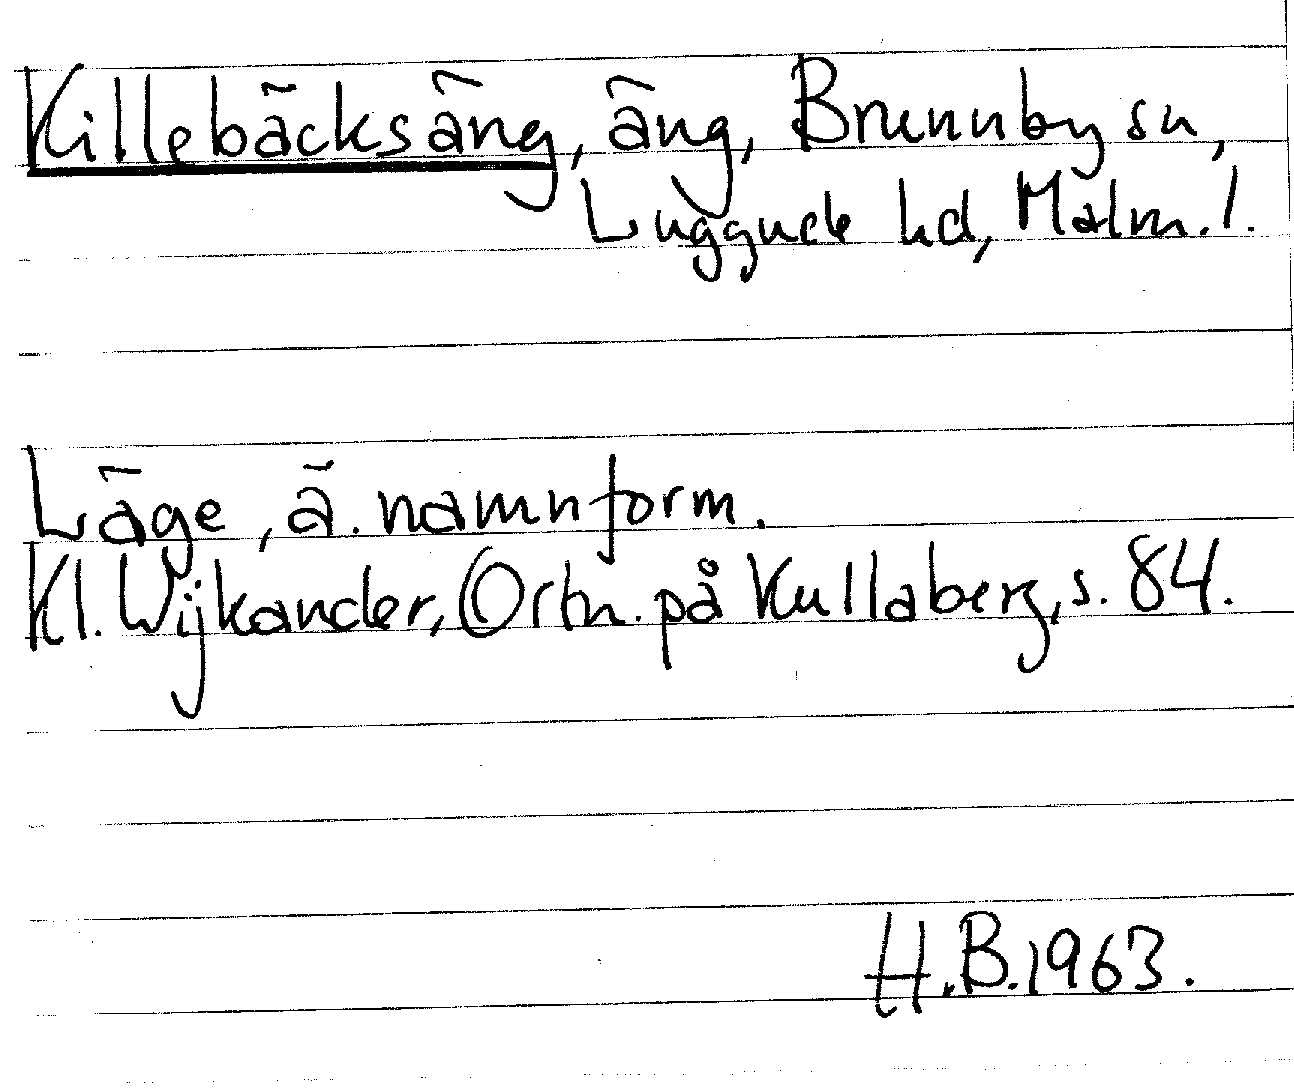 Killebäcksäng, äng, Brunnby sn,
Luggude hd, Malm. l.
Läge, ä. namnform.
Kl. Wijkander, Ortn. på Kullaberg, s. 84.
H.B. 1963.